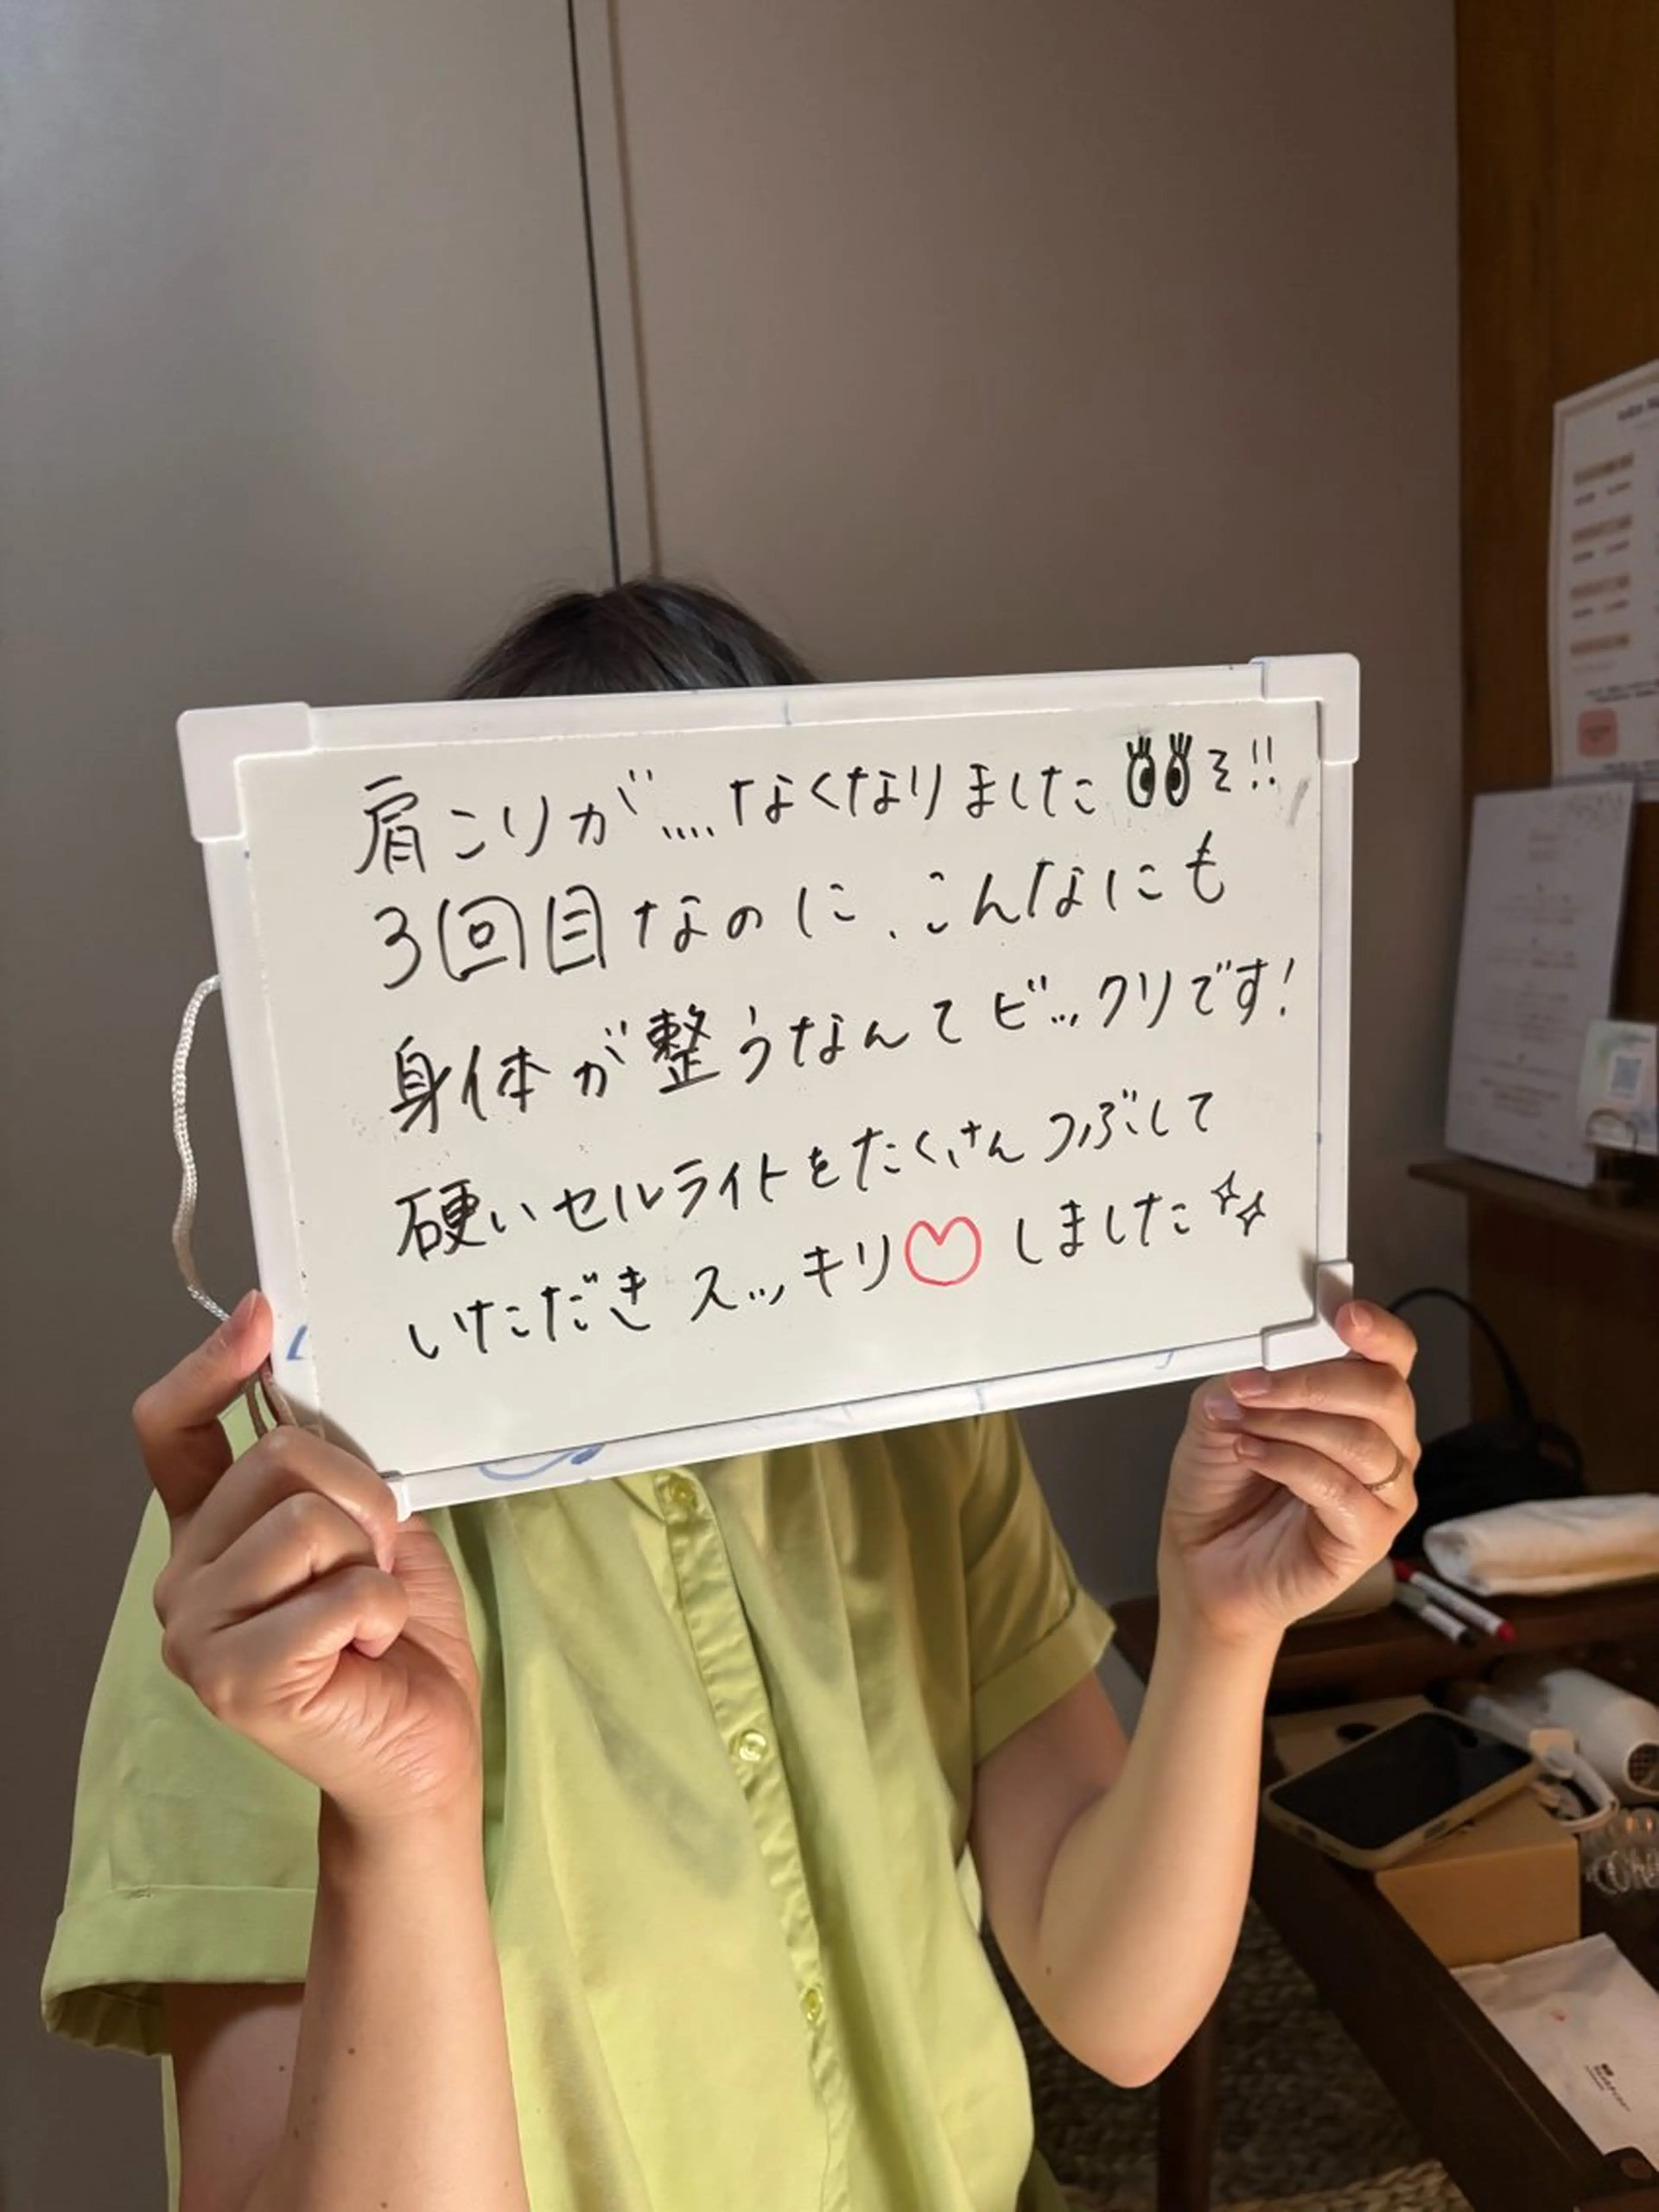 肩こりが....なくなりました👀ミ!!
3回目なのに、こんなにも
身体が整うなんてビックリです!
硬いセルライトをたくさんつぶして
いただきスッキリ♡しました✨